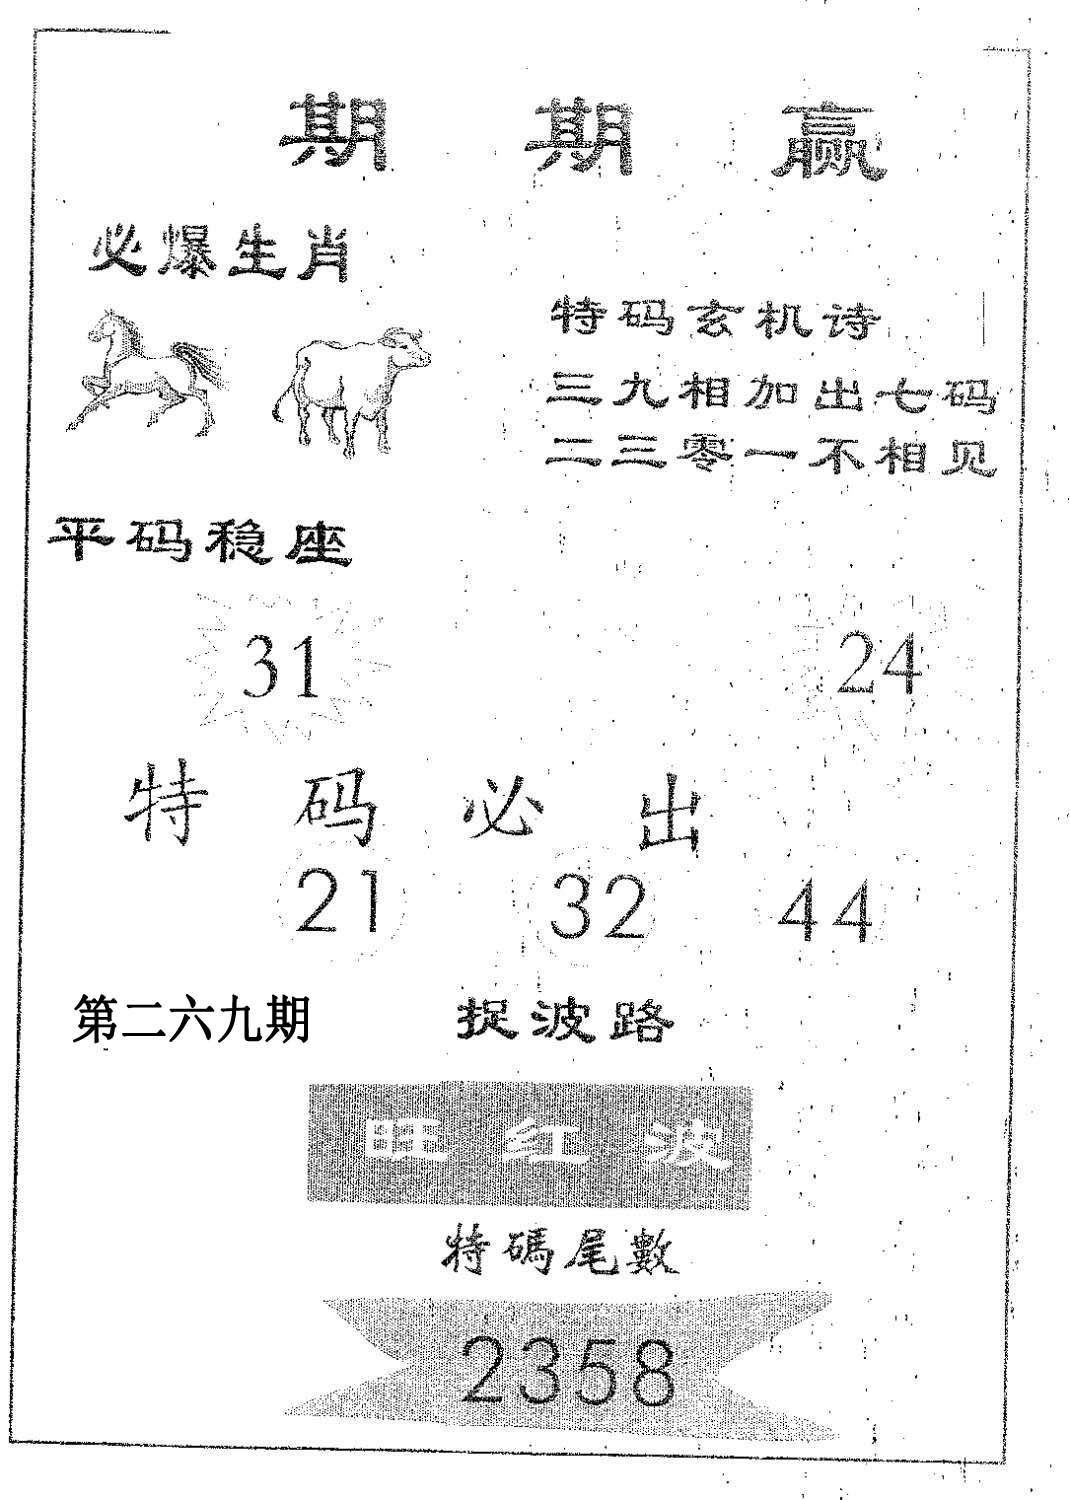 期期赢
必爆生肖
特码玄机诗
三九相加出七码
二三零一不相见
平码稳座
31
24
特码必出
21
32
44
第二六九期
捉波路
旺红波
特碼尾數
2358